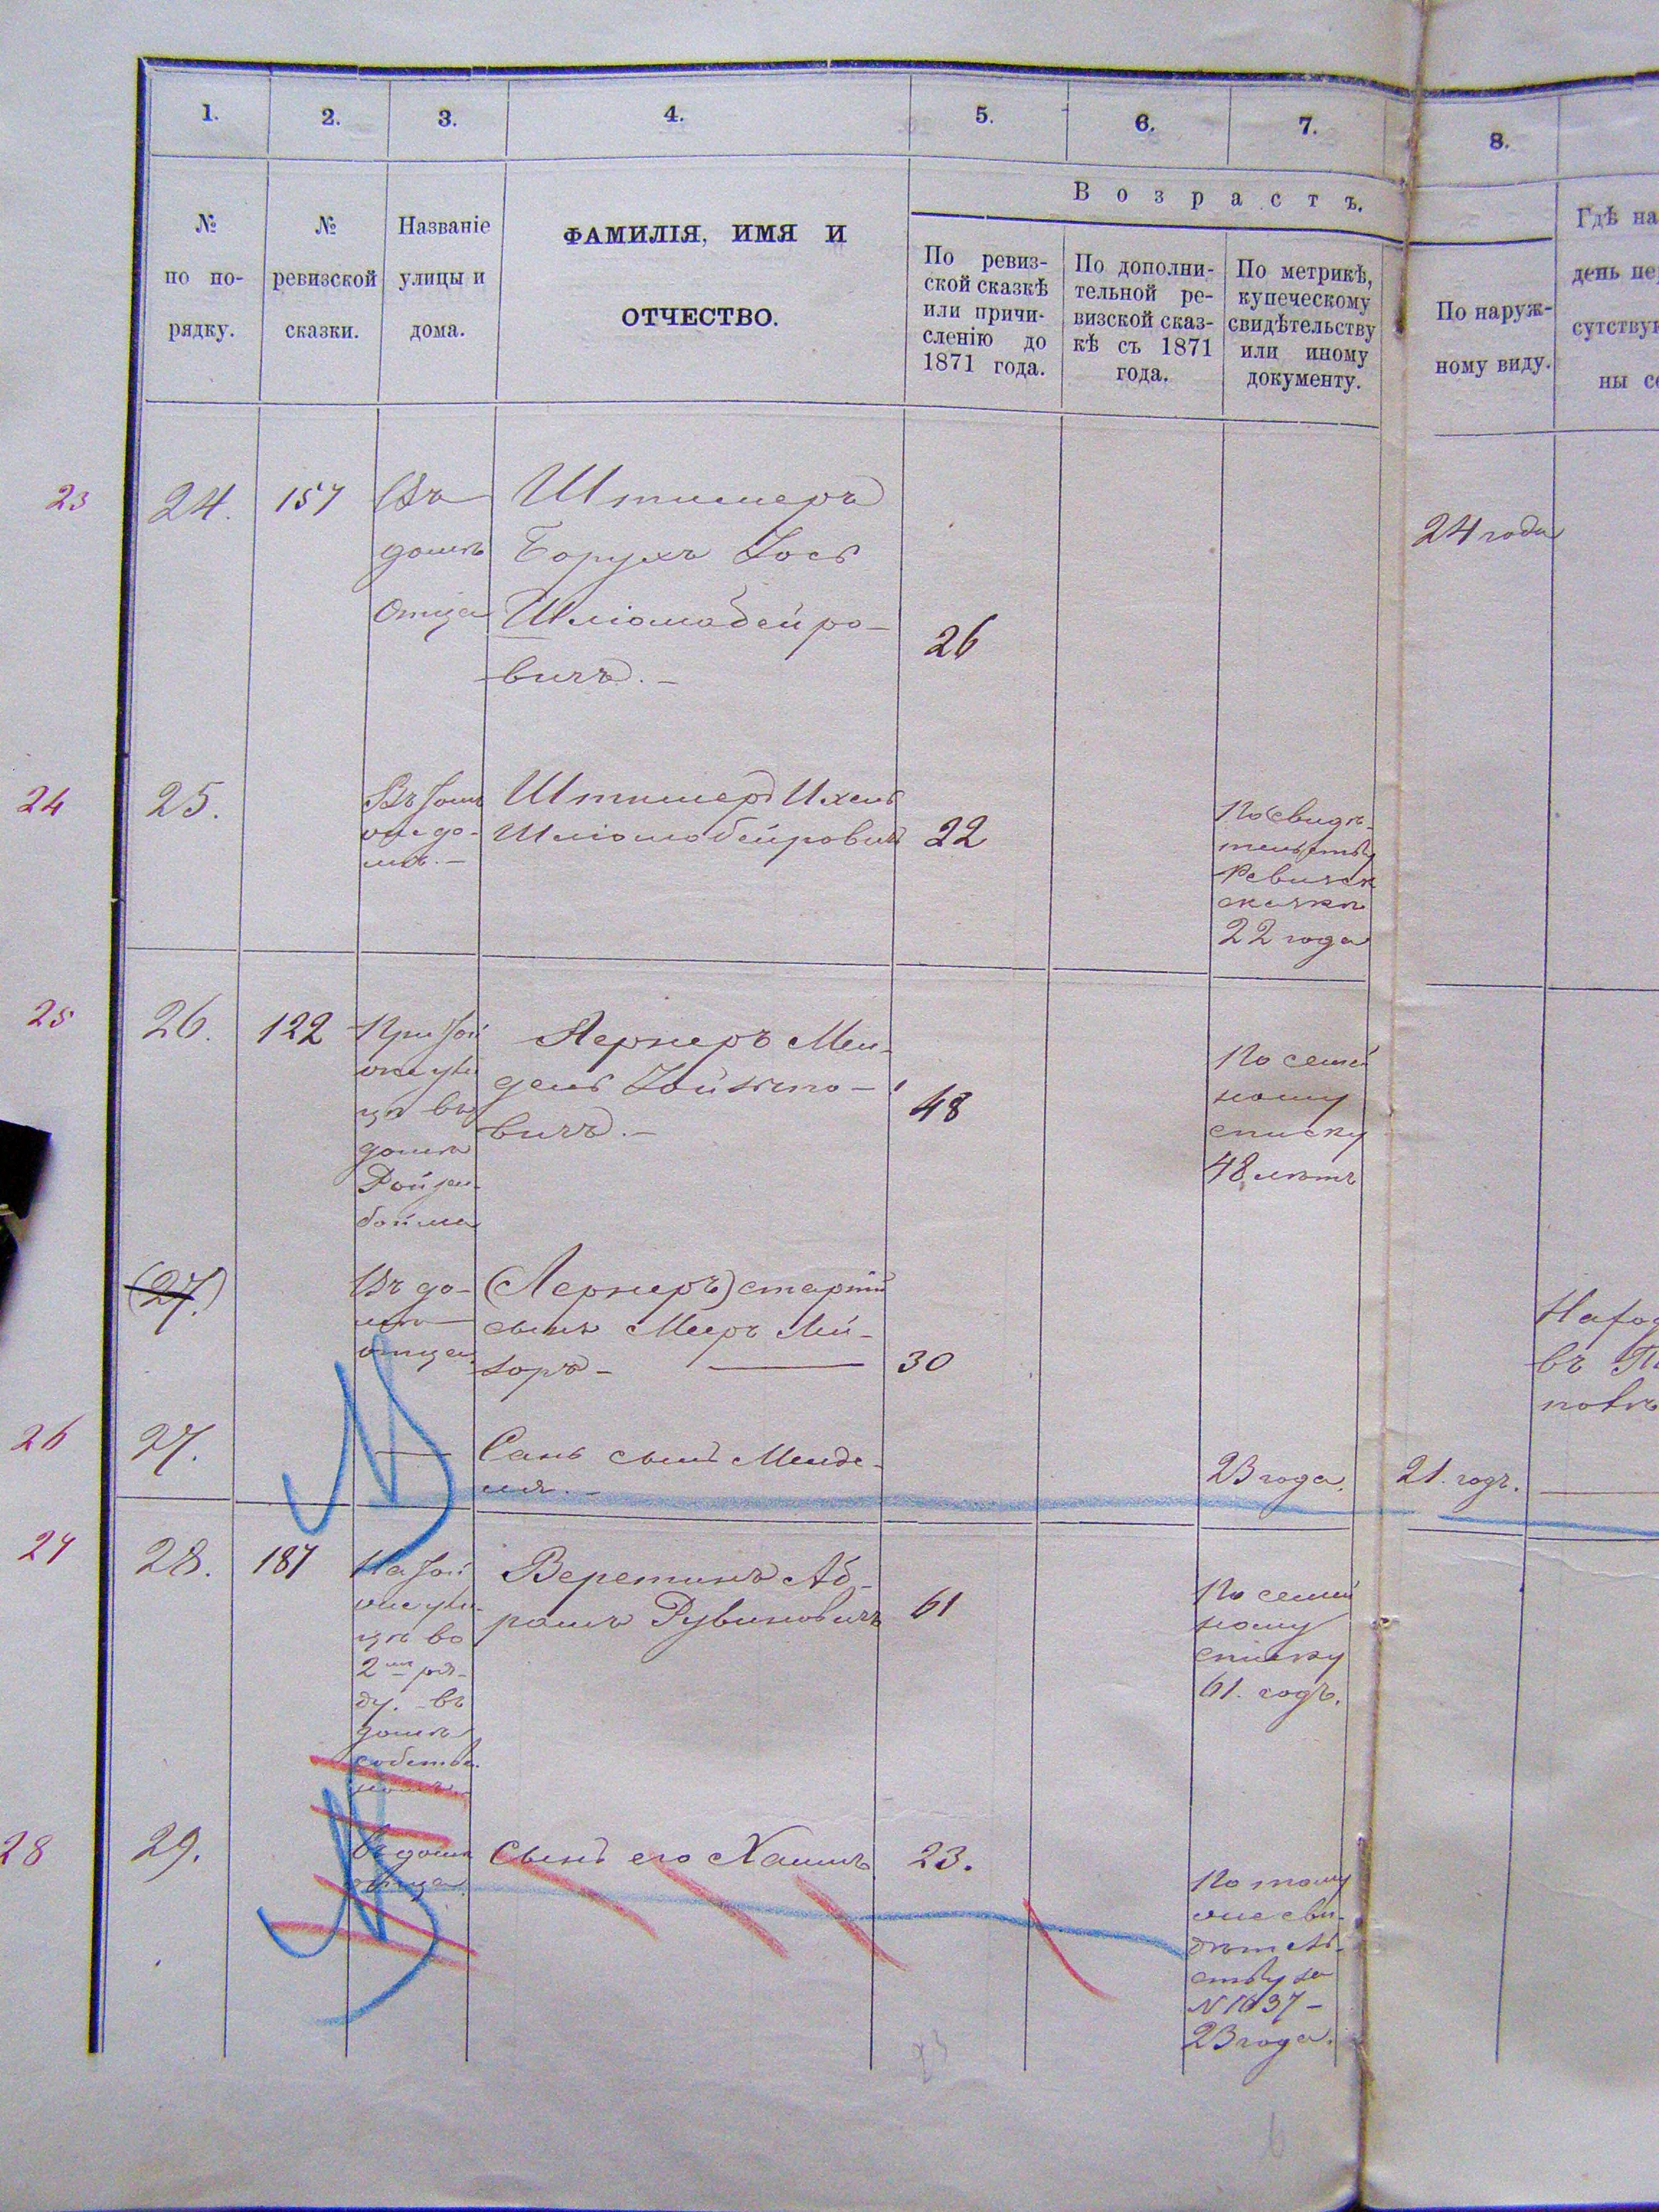 1. 2. 3. 4. 5. 6. 7. 8.
№ по по-
рядку.
№ ревизской
сказки.
Названіе
улицы и
дома.
ФАМИЛІЯ, ИМЯ И
ОТЧЕСТВО.
Возрастъ.
По ревиз-
ской сказкѣ
или причи-
сленію до
1871 года.
По дополни-
тельной ре-
визской сказ-
кѣ съ 1871
года.
По метрикѣ,
купеческому
свидѣтельству
или иному
документу.
По наруж-
ному виду.
Гдѣ на
день пе
сутству
ны с
23
24.
157
Въ
домѣ
отца
Штимеръ
Борухъ Іось
Шліомобейро-
вичъ.—
26
24 года
24
25.
домѣ.—
Штимеръ Ихель
Шліомобейровичъ
22
По свидѣ-
тельству
Ревизск
сказки
22 года
25
26.
122
цѣ въ
домѣ
Ройзен-
бойма
Лернеръ Мен-
дель
вичъ.—
48
По семей
ному
списку
48 лѣтъ
(27.)
Въ до-
мѣ
отца
(Лернеръ) старшій
сынъ Мееръ Лей-
зоръ—
30
въ
26
27.
—
сынъ Менде-
ля.—
23 года.
21. годъ.
27
28.
187
цѣ во
2мъ ря-
ду. въ
домѣ
собствен.
номъ.
Веретинъ Аб-
рамъ Рувиновичъ
61
По семей
ному
списку
61. годъ.
28
29.
Въ домѣ
отца.
Сынъ его Хаимъ
23.
По тому
же сви-
дѣтель-
ству за
N 1637—
23 года.